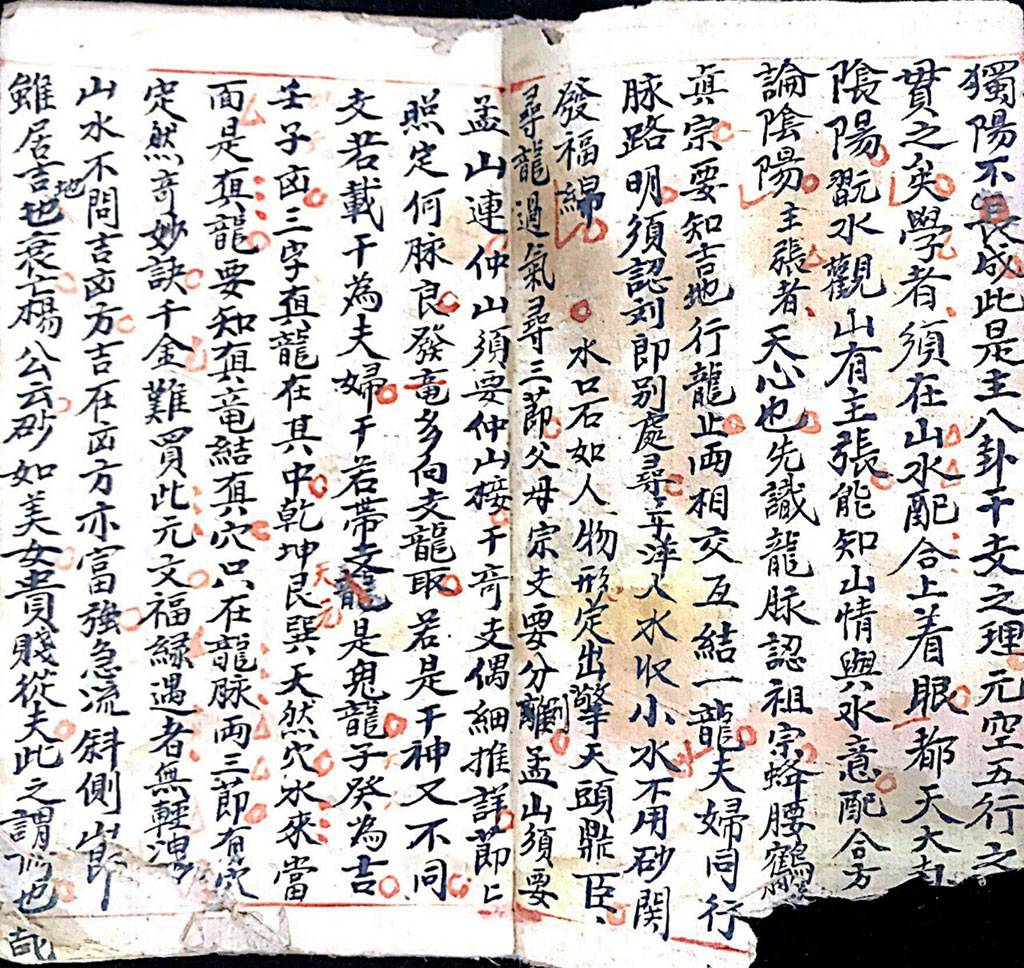 獨陽不長成此是主八卦干支之理元空五行之
貫之矣學者須在山水配合上着眼都天大卦
陰陽翫水觀山有主張能知山情與水意配合方
論陰陽主張者天心也先識龍脉認祖宗蜂腰鶴
真宗要知吉地行龍止両相交互結一龍夫婦同行
脉路明須認刘郎别處尋平洋入水収小水不用砂関
發福綿水口石如人物形定出擎天頭鼎臣
尋龍過氣尋三莭父母宗支要分離孟山須要
孟山連仲山須要仲山接干竒支偶細推詳莭上
照定何脉良發竜多向支龍取若是干神又不同
支若載干為夫婦干若帶支是鬼龍子癸為吉
壬子凶三字真龍在其中乾坤艮巽天然穴水來當
天元
面是真龍要知真竜結真穴只在龍脉両三莭有穴
定然竒妙訣千金難買此元文福緣遇者無輕洩
山水不問吉凶方吉在凶方亦富強急流斜側山莭
雖居吉地衰亡楊公云砂如美女貴賤從夫此之謂也